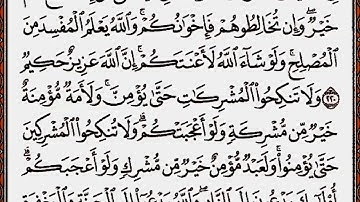 خَيْرٌ ۖ وَإِن تُخَالِطُوهُمْ فَإِخْوَٰنُكُمْ ۚ وَٱللَّهُ يَعْلَمُ ٱلْمُفْسِدَ مِنَ
ٱلْمُصْلِحِ ۚ وَلَوْ شَآءَ ٱللَّهُ لَأَعْنَتَكُمْ ۚ إِنَّ ٱللَّهَ عَزِيزٌ حَكِيمٌ
٢٢٠ وَلَا تَنكِحُوا۟ ٱلْمُشْرِكَٰتِ حَتَّىٰ يُؤْمِنَّ ۚ وَلَأَمَةٌ مُّؤْمِنَةٌ
خَيْرٌ مِّن مُّشْرِكَةٍ وَلَوْ أَعْجَبَتْكُمْ ۗ وَلَا تُنكِحُوا۟ ٱلْمُشْرِكِينَ
حَتَّىٰ يُؤْمِنُوا۟ ۚ وَلَعَبْدٌ مُّؤْمِنٌ خَيْرٌ مِّن مُّشْرِكٍ وَلَوْ أَعْجَبَكُمْ ۗ